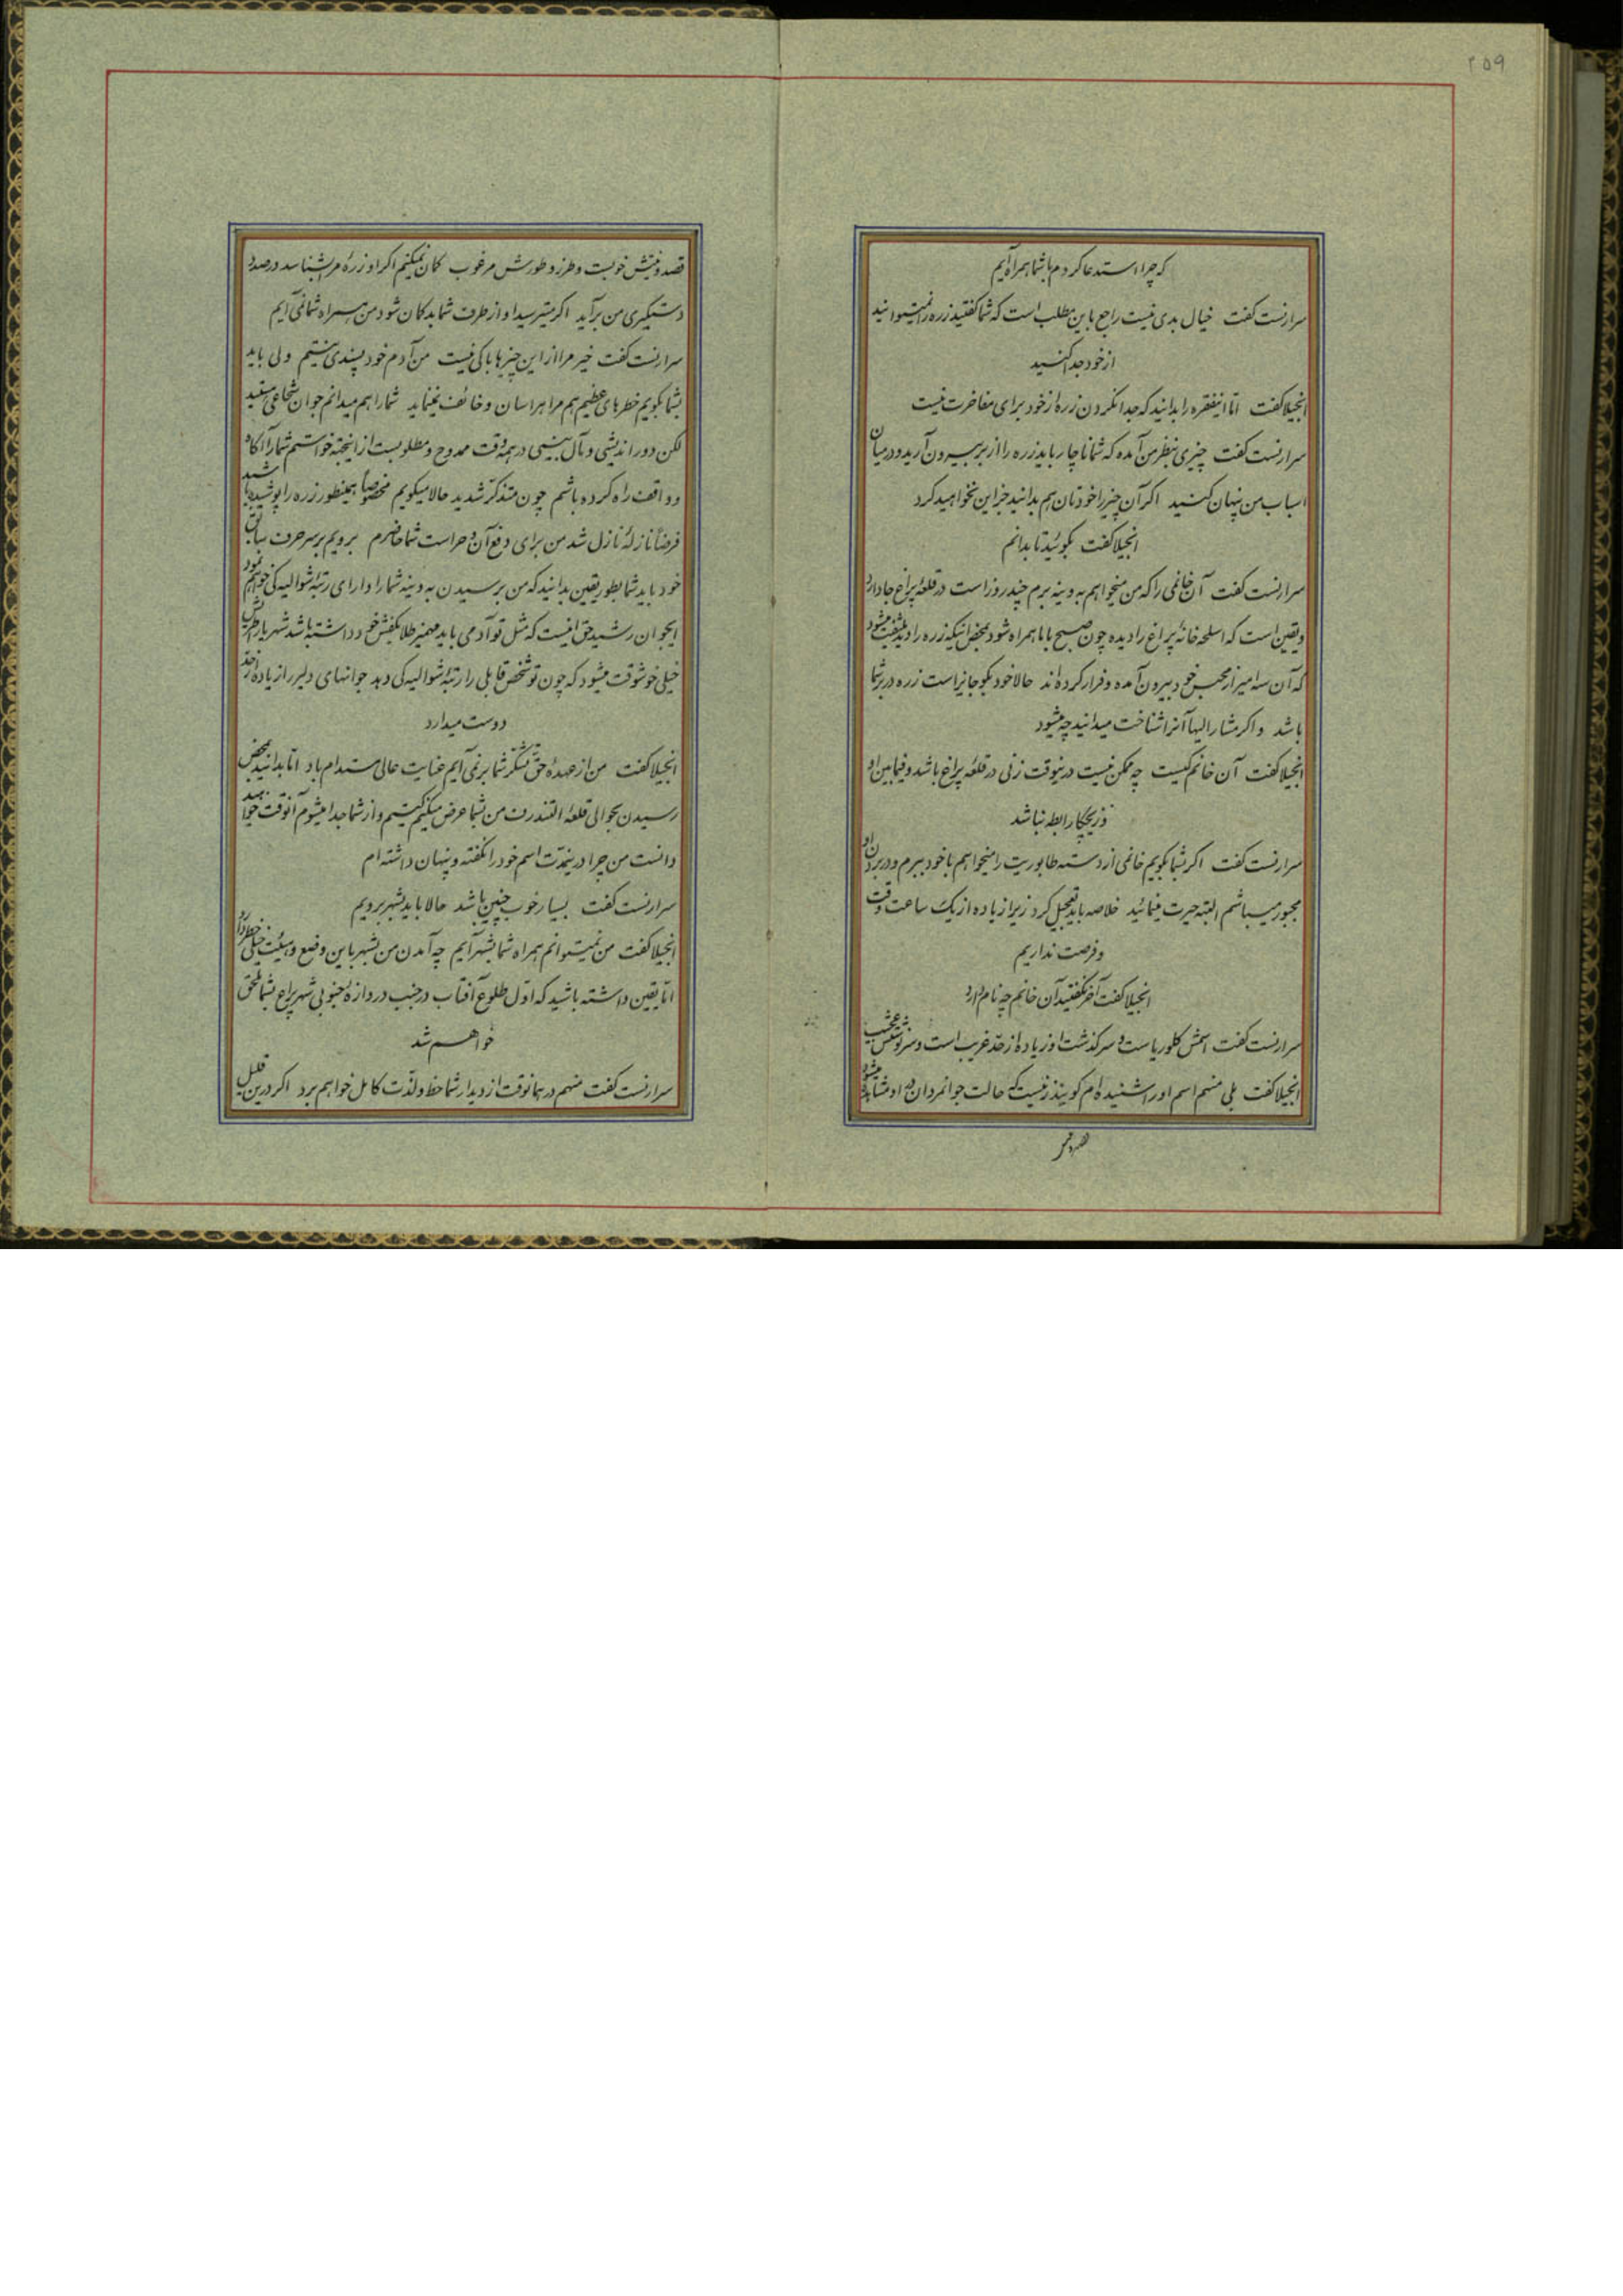 ۲۵۹
که چرا استدعا کردم با شما همراه آیم
سرارنست گفت خیال بدی نیست راجع باین مطلب است که شما گفتید زره را نمیتوانید
از خود جدا کنید
انجیلا گفت امّا اینفقره را بدانید که جدا نکردن زره از خود برای مفاخرت نیست
سرارنست گفت چیزی بنظر من آمده که شما ناچار باید زره را از بر بیرون آرید و در میان
اسباب من پنهان کنید اکر آن چیز را خودتان هم بدانید جز این نخواهید کرد
انجیلا گفت بگوئید تا بدانم
سرارنست گفت آن خانمی را که من میخواهم به وینه برم چند روز است در قلعهٔ پراغ جا دارد
و یقین است که اسلحه خانهٔ پراغ را دیده چون صبح با ما همراه شود بمحض اینکه زره را دید ملتفت میشود
که آن سه امیر از محبس خود بیرون آمده و فرار کرده‌اند حالا خود بگو جانیز است زره در بر شما
باشد و اکر مشار الیها آنرا شناخت میدانید چه میشود
انجیلا گفت آن خانم کیست چه ممکن نیست درینوقت زنی در قلعهٔ پراغ باشد و فیمابین او
و زیچکا رابطه نباشد
سرارنست گفت اکر بشما بگویم خانمی از دسته طابوریت را میخواهم با خود ببرم و در بردن او
مجبور میباشم البته حیرت مینمائید خلاصه باید تعجیل کرد زیرا زیاده از یک ساعت وقت
و فرصت نداریم
انجیلا گفت آخر نگفتید آن خانم چه نام دارد
سرارنست گفت اسمش کلوریاست و سرکذشت او زیاده از حدّ غریب است و سرنوشتش عجیب
انجیلا گفت بلی منهم اسم او را شنیده‌ام کویند زنیست که حالت جوانمردان در او مشاهده میشود
قصد و نیتش خوبست و طرز و طورش مرغوب کمان نمیکنم اکر او زرهٔ مرا بشناسد در صدد
دستکیری من برآید اکر میترسید او از طرف شما بدکمان شود من همراه شما نمی‌آیم
سرارنست گفت خیر مرا از این چیزها باکی نیست من آدم خود پسندی نیستم ولی باید
بشما بگویم خطرهای عظیم هم مرا هراسان و خائف نمینماید شما را هم میدانم جوان شجاعی هستید
لکن دوراندیشی و مآل بینی در همه وقت ممدوح و مطلوبست از اینجهة خواستم شما را آکاه
و واقف راه کرده باشم چون متذکر شدید حالا میکویم مخصوصاً همینطور زره را پوشیده باشید
فرضاً نازلهٔ نازل شد من برای دفع آن و حراست شما حاضرم برویم بر سر حرف سابق
خود باید شما بطور یقین بدانید که من برسیدن به وینه شما را دارای رتبهٔ شوالیه‌کی خواهم نمود
ایجوان رشید حق اینست که مثل تو آدمی باید مهمیز طلا بکفش خود داشته باشد شهریار اطریش
خیلی خوشوقت میشود که چون تو شخص قابلی را رتبهٔ شوالیه‌کی دهد جوانهای دلیر را زیاده از حدّ
دوست میدارد
انجیلا گفت من از عهدهٔ حق تشکر شما بر نمی‌آیم عنایت عالی مستدام باد امّا بدانید بمحض
رسیدن بحوالی قلعهٔ التندرف من بشما عرض میکنم کیستم و از شما جدا میشوم آنوقت خواهید
دانست من چرا درینمدّت اسم خود را نگفته و پنهان داشته‌ام
سرارنست گفت بسیار خوب چنین باشد حالا باید بشهر برویم
انجیلا گفت من نمیتوانم همراه شما بشهر آیم چه آمدن من بشهر باین وضع و هیئت خیلی خطر دارد
امّا یقین داشته باشید که اوّل طلوع آفتاب در جنب دروازهٔ جنوبی شهر پراغ بشما ملحق
خواهم شد
سرارنست گفت منهم در همانوقت از دیدار شما حظ و لذّت کامل خواهم برد اکر درین قلیل